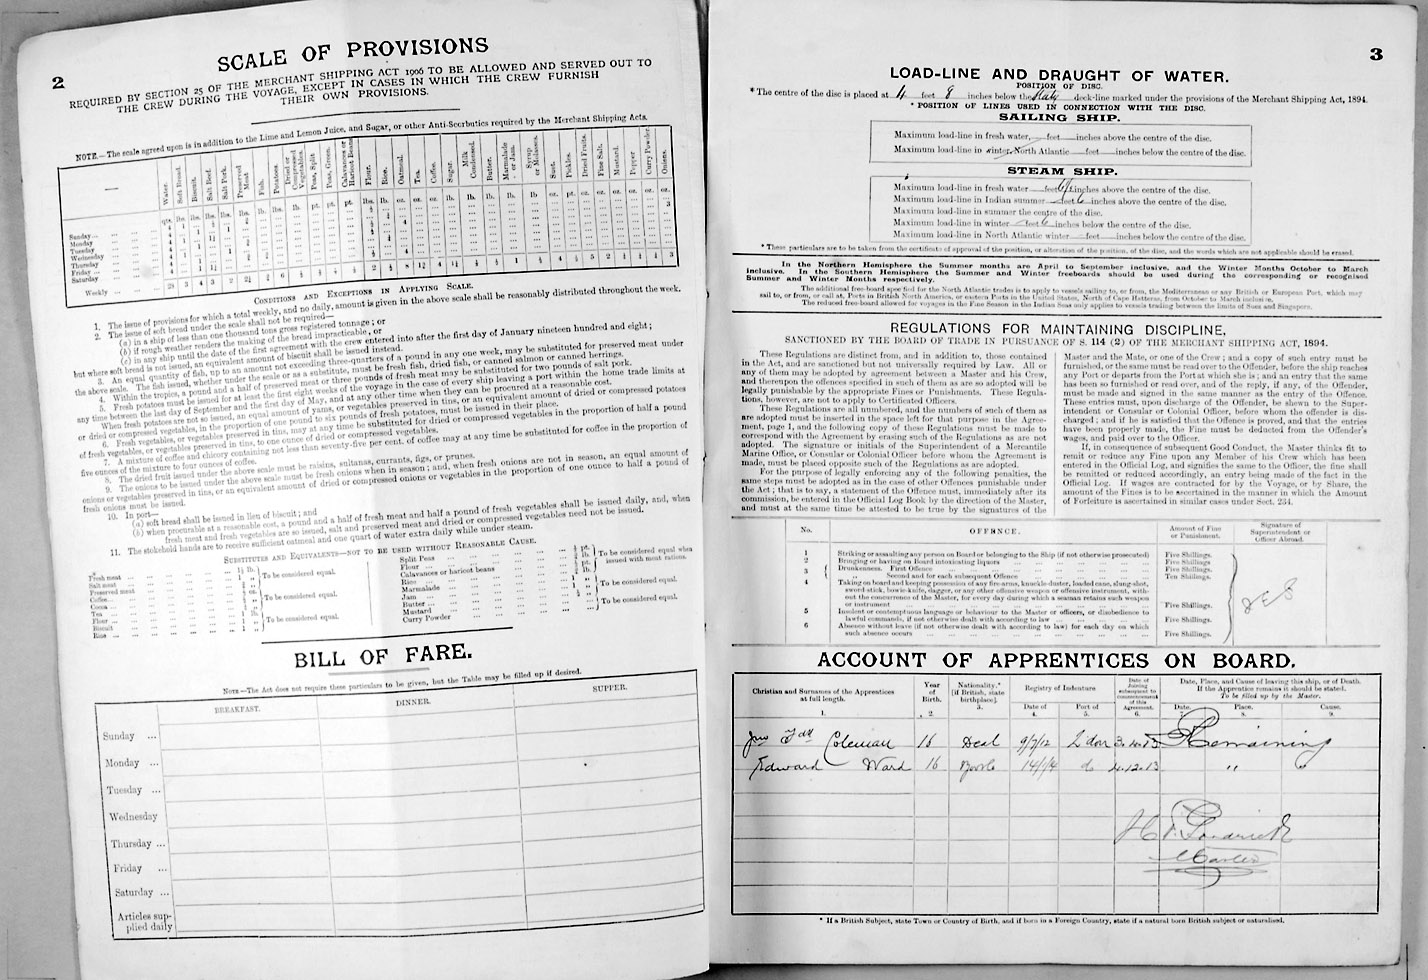 2
SCALE OF PROVISIONS
REQUIRED BY SECTION 25 OF THE MERCHANT SHIPPING ACT 1906 TO BE ALLOWED AND SERVED OUT TO
THE CREW DURING THE VOYAGE, EXCEPT IN CASES IN WHICH THE CREW FURNISH
THEIR OWN PROVISIONS.
NOTE.—The scale agreed upon is in addition to the Lime and Lemon Juice, and Sugar, or other Anti-Scorbutics required by the Merchant Shipping Acts.
Water. Soft Bread. Biscuit. Salt Beef. Salt Pork. Preserved Meat Fish. Potatoes. Dried or Compressed Vegetables. Peas, Split Peas, Green. Calavances or Haricot Beans Flour. Rice. Oatmeal. Tea. Coffee. Sugar. Milk Condensed. Butter. Marmalade or Jam. Syrup or Molasses. Suet. Pickles. Dried Fruits. Fine Salt. Mustard. Pepper Curry Powder. Onions.
Sunday...
Monday
Tuesday
Wednesday
Thursday
Friday ...
Saturday
Weekly ...
CONDITIONS AND EXCEPTIONS IN APPLYING SCALE.
1. The issue of provisions for which a total weekly, and no daily, amount is given in the above scale shall be reasonably distributed throughout the week.
2. The issue of soft bread under the scale shall not be required—
(a) in a ship of less than one thousand tons gross registered tonnage; or
(b) if rough weather renders the making of the bread impracticable, or
(c) in any ship until the date of the first agreement with the crew entered into after the first day of January nineteen hundred and eight;
but where soft bread is not issued, an equivalent amount of biscuit shall be issued instead.
3. An equal quantity of fish, up to an amount not exceeding three-quarters of a pound in any one week, may be substituted for preserved meat under
the above scale. The fish issued, whether under the scale or as a substitute, must be fresh fish, dried fish, or canned salmon or canned herrings.
4. Within the tropics, a pound and a half of preserved meat or three pounds of fresh meat may be substituted for two pounds of salt pork.
5. Fresh potatoes must be issued for at least the first eight weeks of the voyage in the case of every ship leaving a port within the home trade limits at
any time between the last day of September and the first day of May, and at any other time when they can be procured at a reasonable cost.
When fresh potatoes are not so issued, an equal amount of yams, or vegetables preserved in tins, or an equivalent amount of dried or compressed potatoes
or dried or compressed vegetables, in the proportion of one pound to six pounds of fresh potatoes, must be issued in their place.
6. Fresh vegetables, or vegetables preserved in tins, may at any time be substituted for dried or compressed vegetables in the proportion of half a pound
of fresh vegetables, or vegetables preserved in tins, to one ounce of dried or compressed vegetables.
7. A mixture of coffee and chicory containing not less than seventy-five per cent. of coffee may at any time be substituted for coffee in the proportion of
five ounces of the mixture to four ounces of coffee.
8. The dried fruit issued under the above scale must be raisins, sultanas, currants, figs, or prunes.
9. The onions to be issued under the above scale must be fresh onions when in season; and, when fresh onions are not in season, an equal amount of
onions or vegetables preserved in tins, or an equivalent amount of dried or compressed onions or vegetables in the proportion of one ounce to half a pound of
fresh onions must be issued.
10. In port—
(a) soft bread shall be issued in lieu of biscuit; and
(b) when procurable at a reasonable cost, a pound and a half of fresh meat and half a pound of fresh vegetables shall be issued daily, and, when
fresh meat and fresh vegetables are so issued, salt and preserved meat and dried or compressed vegetables need not be issued.
11. The stokehold hands are to receive sufficient oatmeal and one quart of water extra daily while under steam.
SUBSTITUTES AND EQUIVALENTS—NOT TO BE USED WITHOUT REASONABLE CAUSE.
Fresh meat ...
Salt meat ...
Preserved meat
Coffee...
Cocoa ...
Tea
Flour ...
Biscuit
Rice ...
To be considered equal.
To be considered equal.
To be considered equal.
Split Peas
Flour ...
Calavances or haricot beans
Rice ...
Marmalade ...
Butter ...
Mustard
Curry Powder
To be considered equal when issued with meat rations.
To be considered equal.
To be considered equal.
BILL OF FARE.
NOTE—The Act does not require these particulars to be given, but the Table may be filled up if desired.
BREAKFAST. DINNER. SUPPER.
Sunday ...
Monday ...
Tuesday ...
Wednesday
Thursday ...
Friday ...
Saturday ...
Articles sup-
plied daily
3
LOAD-LINE AND DRAUGHT OF WATER.
POSITION OF DISC.
* The centre of the disc is placed at 4 feet 8 inches below the deck-line marked under the provisions of the Merchant Shipping Act, 1894.
* POSITION OF LINES USED IN CONNECTION WITH THE DISC.
SAILING SHIP.
Maximum load-line in fresh water, feet inches above the centre of the disc.
Maximum load-line in winter, North Atlantic feet inches below the centre of the disc.
STEAM SHIP.
Maximum load-line in fresh water feet inches above the centre of the disc.
Maximum load-line in Indian summer feet 6 inches above the centre of the disc.
Maximum load-line in summer the centre of the disc.
Maximum load-line in winter feet 6 inches below the centre of the disc.
Maximum load-line in North Atlantic winter feet inches below the centre of the disc.
* These particulars are to be taken from the certificate of approval of the position, or alteration of the position, of the disc, and the words which are not applicable should be erased.
In the Northern Hemisphere the Summer months are April to September inclusive, and the Winter Months October to March
inclusive. In the Southern Hemisphere the Summer and Winter freeboards should be used during the corresponding or recognised
Summer and Winter Months respectively.
The additional free-board specified for the North Atlantic trades is to apply to vessels sailing to, or from, the Mediterranean or any British or European Port, which may
sail to, or from, or call at, Ports in British North America, or eastern Ports in the United States, North of Cape Hatteras, from October to March inclusive.
The reduced free-board allowed for voyages in the Fine Season in the Indian Seas only applies to vessels trading between the limits of Suez and Singapore.
REGULATIONS FOR MAINTAINING DISCIPLINE,
SANCTIONED BY THE BOARD OF TRADE IN PURSUANCE OF S. 114 (2) OF THE MERCHANT SHIPPING ACT, 1894.
These Regulations are distinct from, and in addition to, those contained
in the Act, and are sanctioned but not universally required by Law. All or
any of them may be adopted by agreement between a Master and his Crew,
and thereupon the offences specified in such of them as are so adopted will be
legally punishable by the appropriate Fines or Punishments. These Regula-
tions, however, are not to apply to Certificated Officers.
These Regulations are all numbered, and the numbers of such of them as
are adopted must be inserted in the space left for that purpose in the Agree-
ment, page 1, and the following copy of these Regulations must be made to
correspond with the Agreement by erasing such of the Regulations as are not
adopted. The signature or initials of the Superintendent of a Mercantile
Marine Office, or Consular or Colonial Officer before whom the Agreement is
made, must be placed opposite such of the Regulations as are adopted.
For the purpose of legally enforcing any of the following penalties, the
same steps must be adopted as in the case of other Offences punishable under
the Act; that is to say, a statement of the Offence must, immediately after its
commission, be entered in the Official Log Book by the direction of the Master,
and must at the same time be attested to be true by the signatures of the
Master and the Mate, or one of the Crew; and a copy of such entry must be
furnished, or the same must be read over to the Offender, before the ship reaches
any Port or departs from the Port at which she is; and an entry that the same
has been so furnished or read over, and of the reply, if any, of the Offender,
must be made and signed in the same manner as the entry of the Offence.
These entries must, upon discharge of the Offender, be shewn to the Super-
intendent or Consular or Colonial Officer, before whom the offender is dis-
charged; and if he is satisfied that the Offence is proved, and that the entries
have been properly made, the Fine must be deducted from the Offender's
wages, and paid over to the Officer.
If, in consequence of subsequent Good Conduct, the Master thinks fit to
remit or reduce any Fine upon any Member of his Crew which has been
entered in the Official Log, and signifies the same to the Officer, the fine shall
be remitted or reduced accordingly, an entry being made of the fact in the
Official Log. If wages are contracted for by the Voyage, or by Share, the
amount of the Fines is to be ascertained in the manner in which the Amount
of Forfeiture is ascertained in similar cases under Sect. 234.
No. OFFENCE. Amount of Fine or Punishment. Signature of Superintendent or Officer Abroad.
1 Striking or assaulting any person on Board or belonging to the Ship (if not otherwise prosecuted) Five Shillings.
2 Bringing or having on Board intoxicating liquors Five Shillings.
3 Drunkenness. First Offence Five Shillings.
Second and for each subsequent Offence Ten Shillings.
4 Taking on board and keeping possession of any fire-arms, knuckle-duster, loaded cane, slung-shot,
sword-stick, bowie-knife, dagger, or any other offensive weapon or offensive instrument, with-
out the concurrence of the Master, for every day during which a seaman retains such weapon
or instrument Five Shillings.
5 Insolent or contemptuous language or behaviour to the Master or officers, or disobedience to
lawful commands, if not otherwise dealt with according to law Five Shillings.
6 Absence without leave (if not otherwise dealt with according to law) for each day on which
such absence occurs Five Shillings.
ACCOUNT OF APPRENTICES ON BOARD.
Christian and Surnames of the Apprentices at full length. 1. Year of Birth. 2. Nationality.* [if British, state birthplace]. 3. Registry of Indenture Date of 4. Port of 5. Date of Joining subsequent to commencement of this Agreement. 6. Date, Place, and Cause of leaving this ship, or of Death. If the Apprentice remains it should be stated. To be filled up by the Master. Date. 7. Place. 8. Cause. 9.
Jno Fdk Coleman 16 Deal 9/7/12 Ldon 3.12.13 Remaining
Edward Ward 16 4.12.13 " "
Master
* If a British Subject, state Town or Country of Birth, and if born in a Foreign Country, state if a natural born British subject or naturalised.